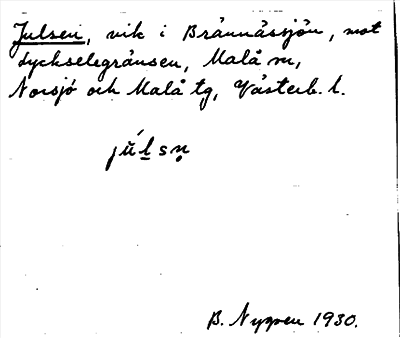 Julsen, vik i Brännässjön, mot
Lyckselegränsen, Malå sn,
Norsjö och Malå tg, Västerb. l.
jú̆l̲sn̥
B. Nygren 1930.